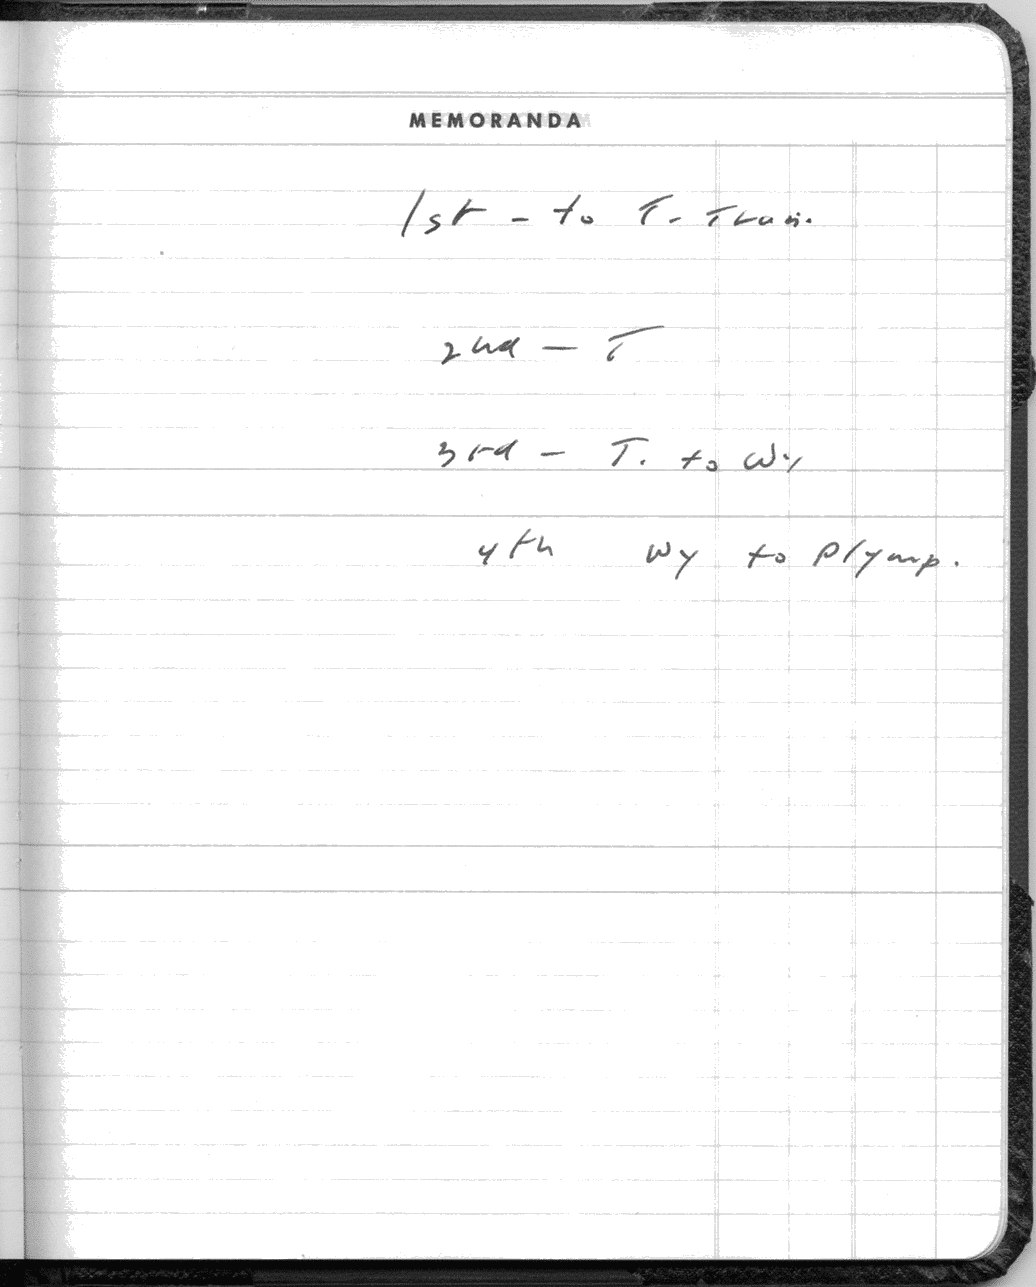 MEMORANDA
1st - to T. Train.
2nd - T
3rd - T. to Wy
4th Wy to Plymp.